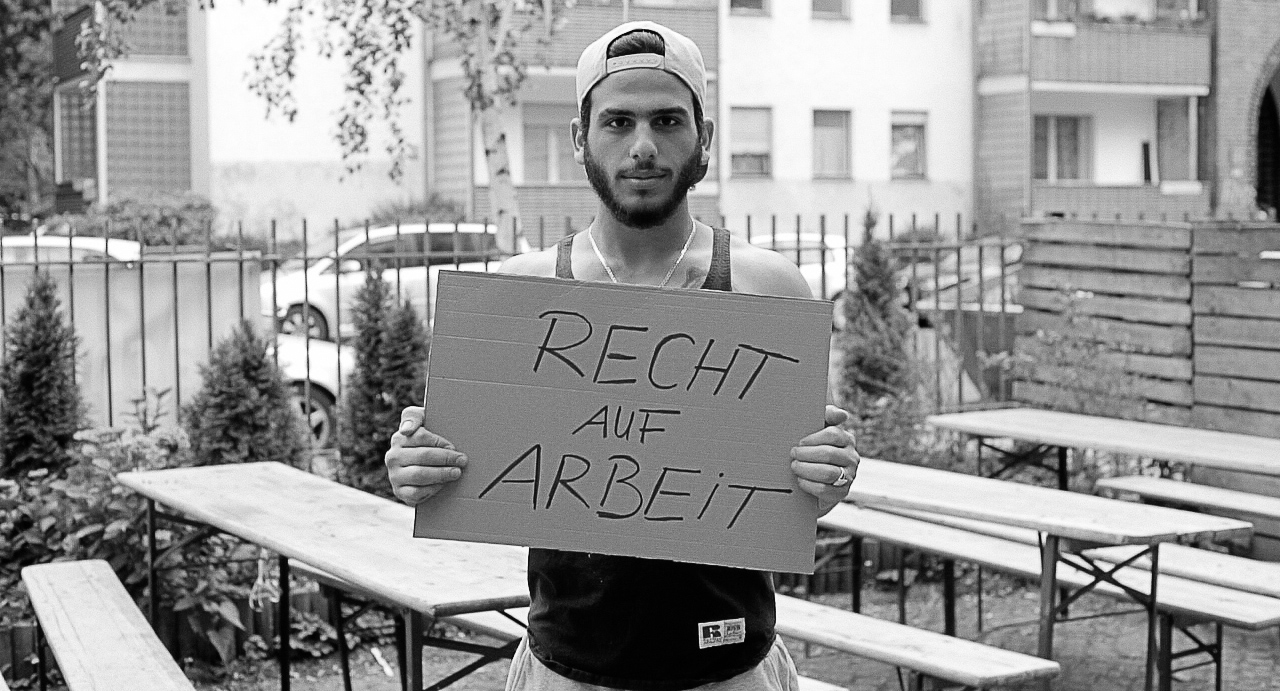 RECHT
AUF
ARBEiT